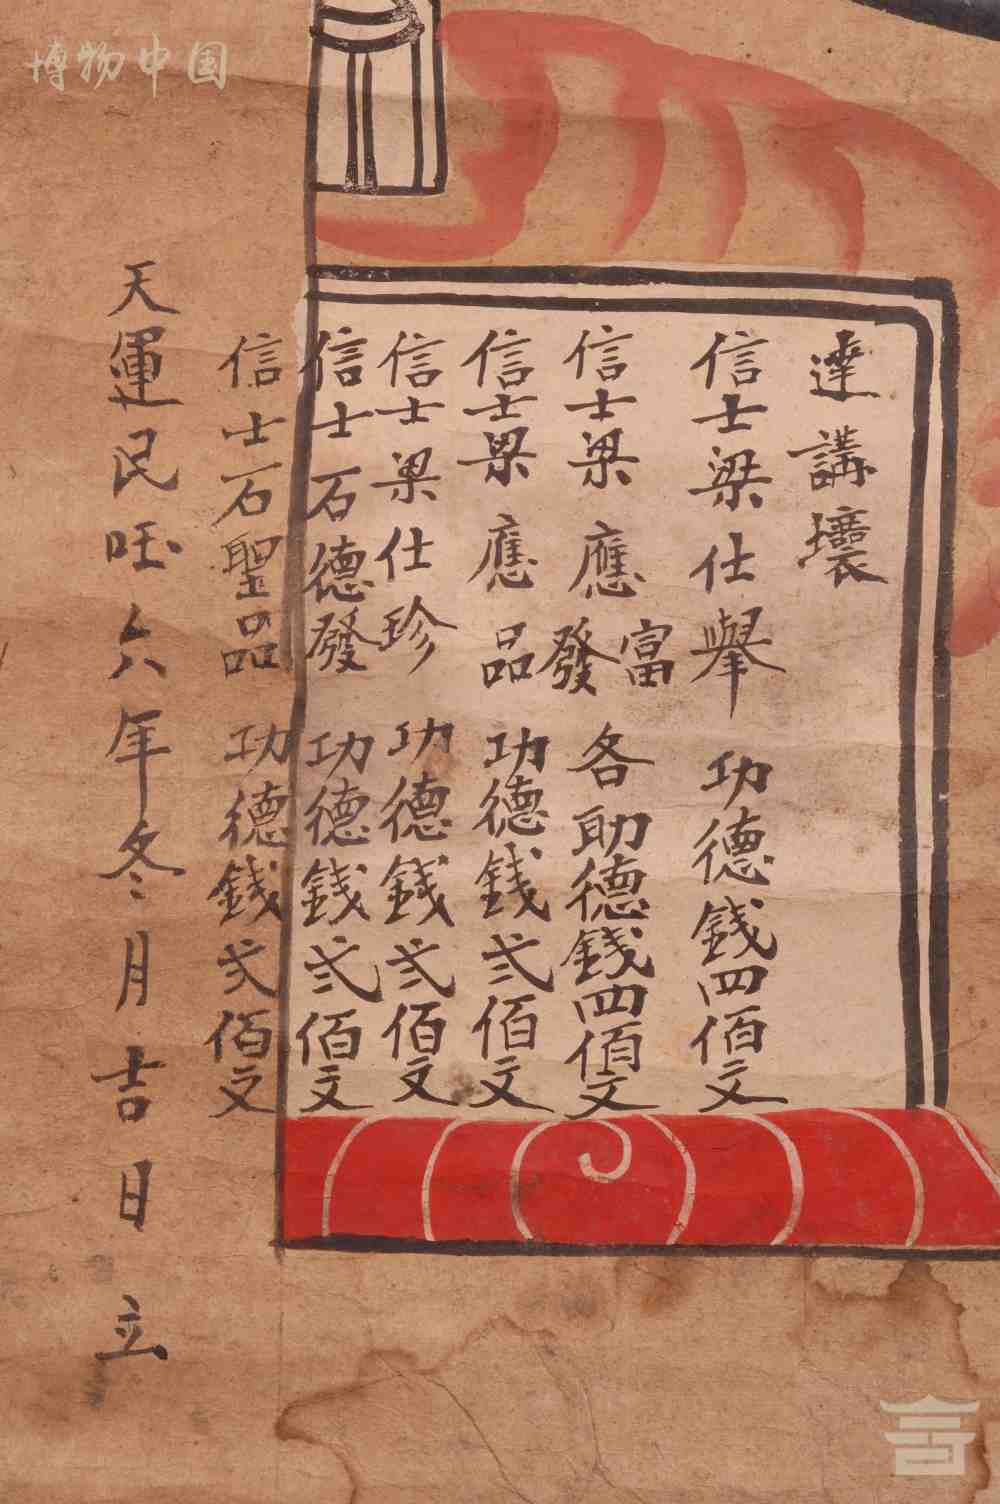 博物中国
達講壞
信士梁仕舉 功德錢四佰文
信士梁應發富 各助德錢四佰文
信士梁應品 功德錢弍佰文
信士梁仕珍 功德錢弍佰文
信士石德發 功德錢弍佰文
信士石聖品 功德錢弍佰文
天運民国六年冬月吉日立